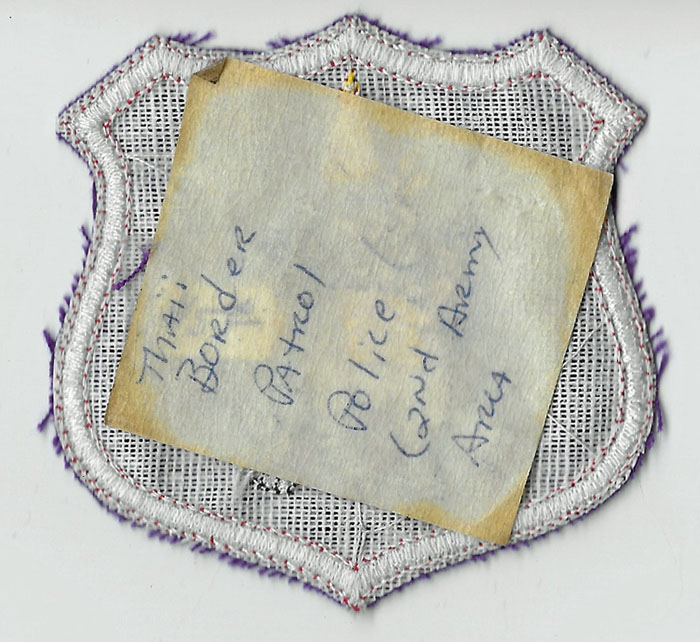 Thaii
BORdeR
PAtROl
Police (
(2Nd ARmy
AReA